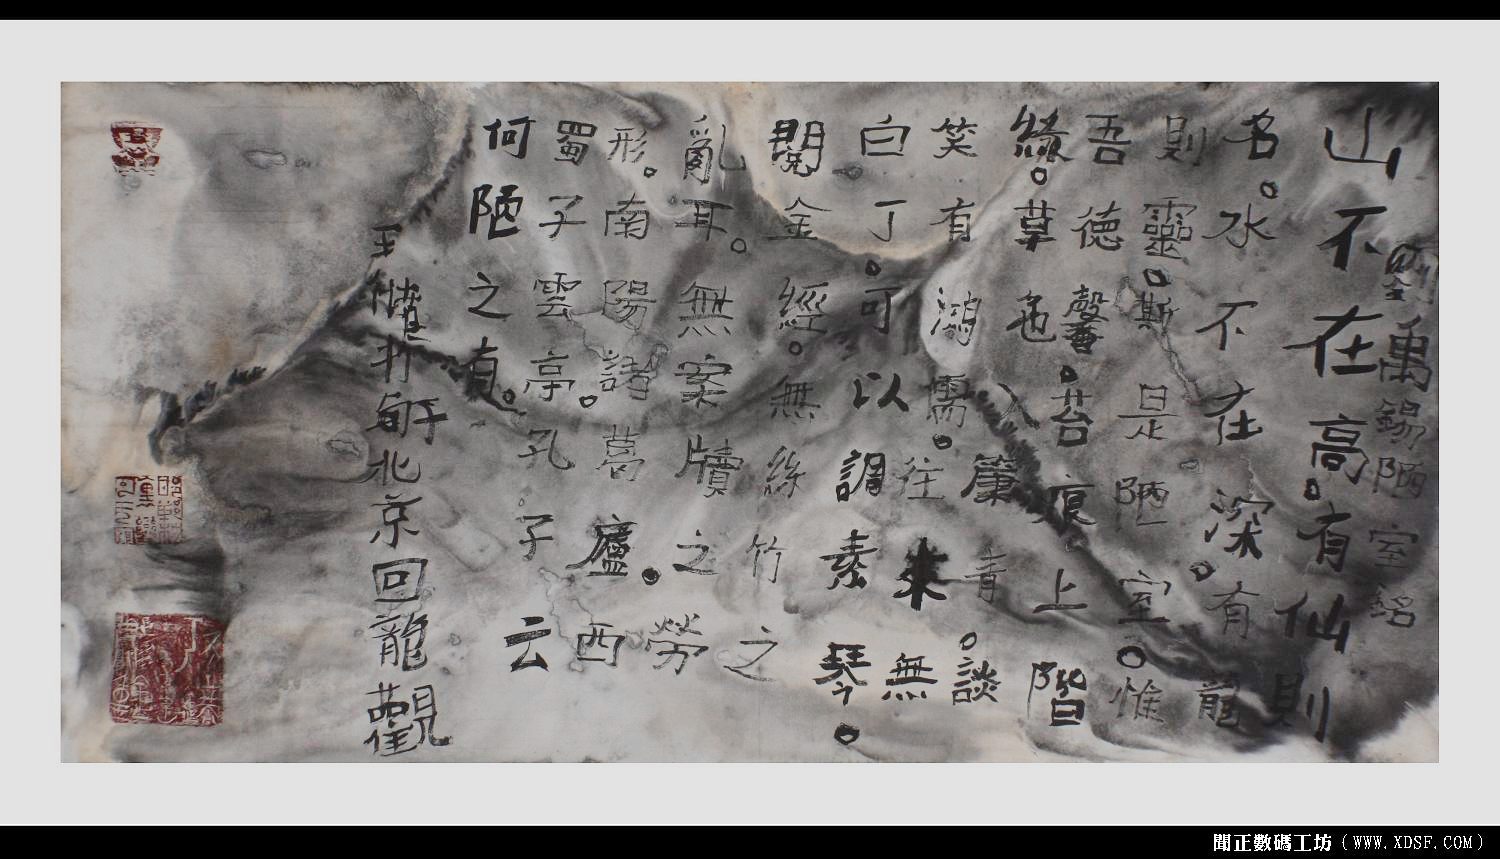 劉禹錫陋室銘
山不在高。有仙則
名。水不在深。有龍
則靈。斯是陋室。惟
吾德馨。苔痕上階
綠。草色入簾青。談
笑有鴻儒。往來無
白丁。可以調素琴。
閱金經。無絲竹之
亂耳。無案牘之勞
形。南陽諸葛廬。西
蜀子雲亭。孔子云
何陋之有。
王于北京回龍觀
聞正數碼工坊（WWW.XDSF.COM）